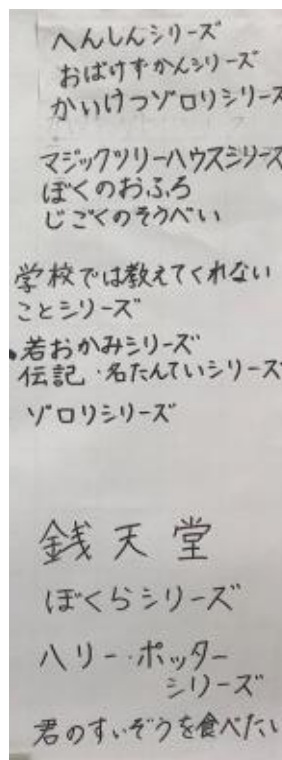 へんしんシリーズ
おばけずかんシリーズ
かいけつゾロリシリーズ
マジックツリーハウスシリーズ
ぼくのおふろ
じごくのそうべい
学校では教えてくれない
ことシリーズ
若おかみシリーズ
伝記・名たんていシリーズ
ゾロリシリーズ
銭天堂
ぼくらシリーズ
ハリー・ポッター
シリーズ
君のすいぞうを食べたい